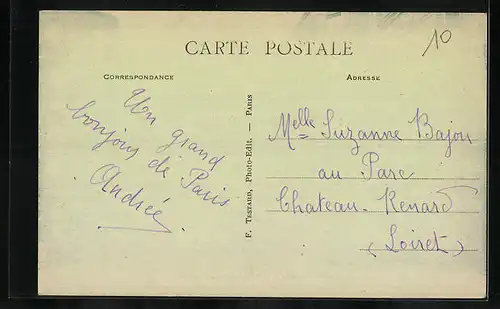 CARTE POSTALE
10
CORRESPONDANCE
ADRESSE
Un grand
bonjour de Paris
Andrée
F. TESTARD, Photo-Edit. — PARIS
Melle Suzanne Bajou
au Parc
Chateau-Renard
(Loiret)